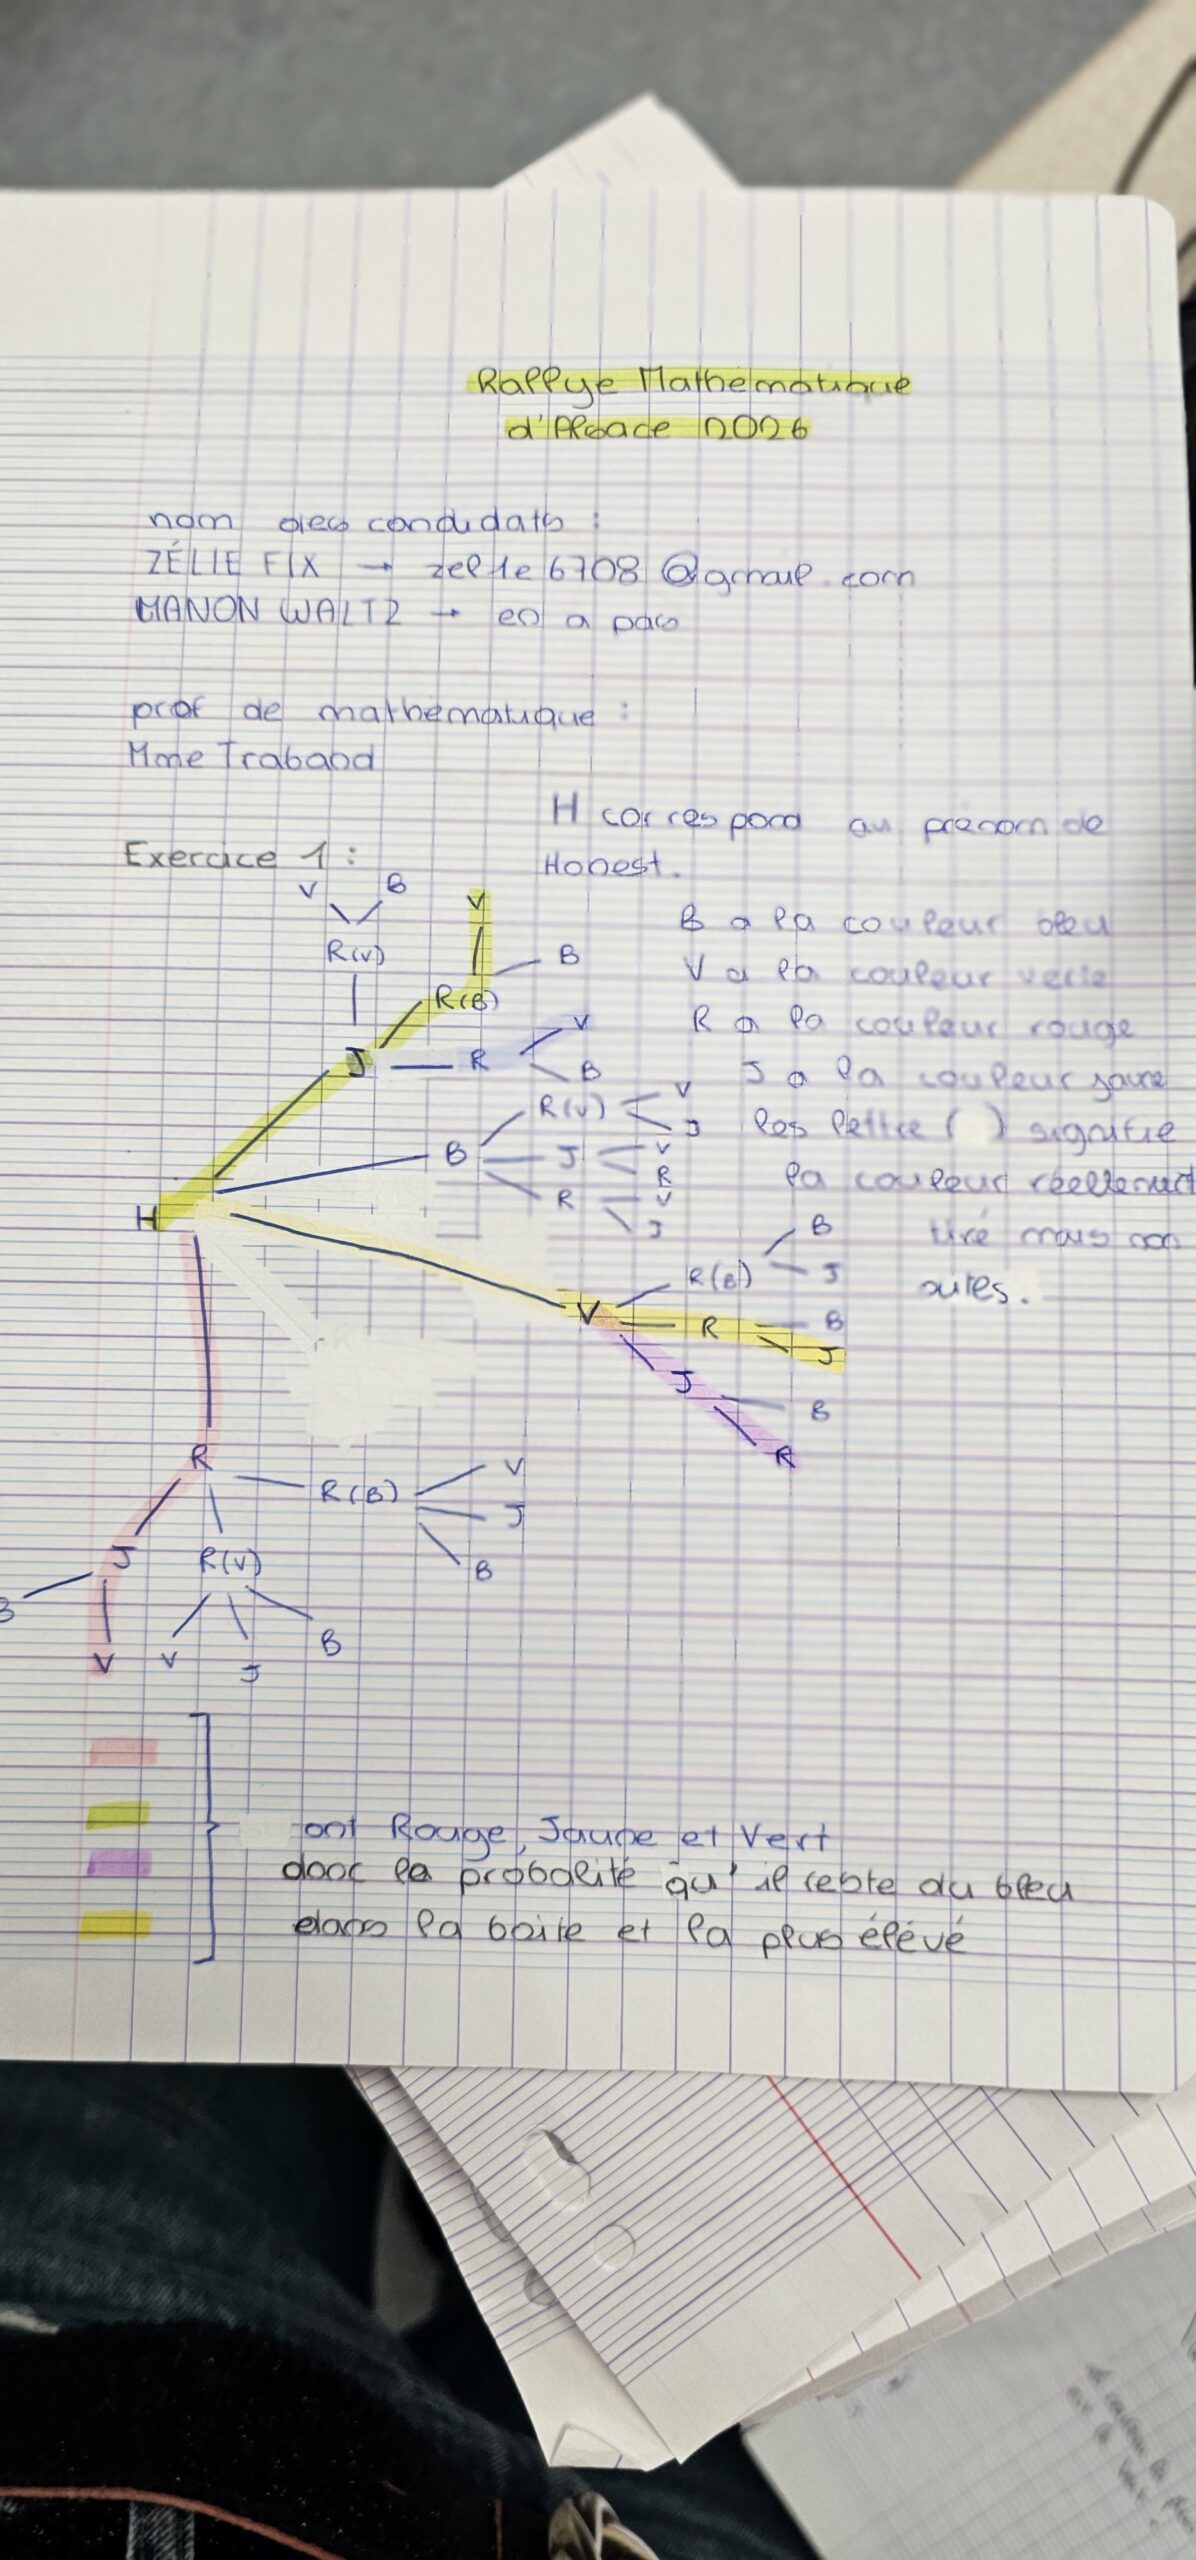 Rallye Mathématique
d'Alsace 2026
nom des candidats :
ZÉLIE FIX → zelie6708@gmail.com
MANON WALTZ → en a pas
prof de mathématique :
Mme Traband
H correspond au prénom de
Exercice 1 :
Honest.
V B V
B a la couleur bleu
R(V) B
V a la couleur verte
R(B)
R a la couleur rouge
V
J R
B
J a la couleur jaune
V
R(V)
J
les lettre ( ) signifie
B J V
R
la couleur réellement
R V
J
H
tiré mais non
B
R(B) J
V R B
J
J
B
R
R R(B) V
J
B
J R(V)
B
V V J B
ont Rouge, Jaune et Vert
donc la probalité qu'il reste du bleu
dans la boite et la plus élévé